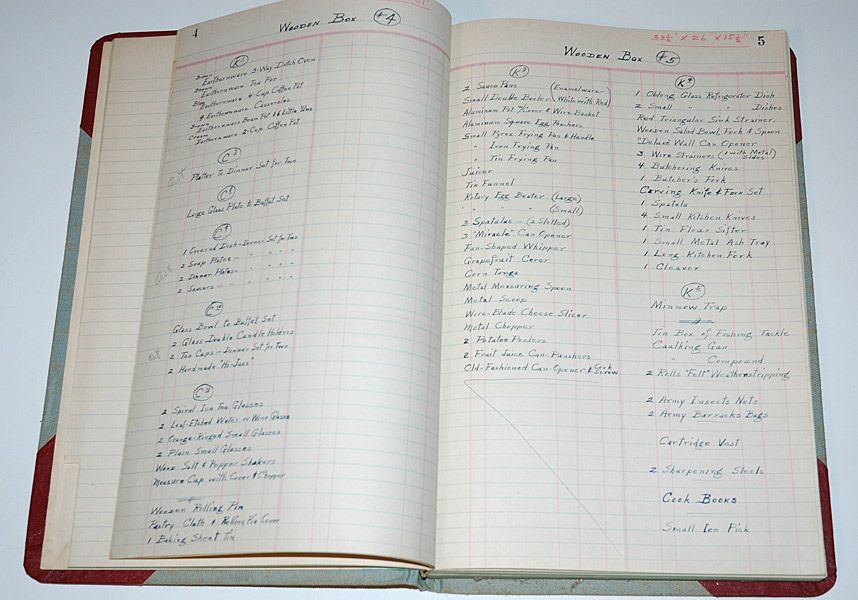 4
Wooden Box #4
K1
Brown Earthernware 3-Way Dutch Oven
Brown Earthernware Tea Pot
Blue Earthernware 4-Cup Coffee Pot
4 Earthernware Casseroles
Brown Earthernware Bean Pot & 6 Little Ones
Cream Earthernware 2-Cup Coffee Pot
Platter to Dinner Set for Two
Large Glass Plate to Buffet Set
1 Covered Dish - Dinner Set for Two
2 Soup Plates - " " " "
2 Dinner Plates - " " " "
2 Saucers - " " " "
C10
Glass Bowl to Buffet Set
2 Glass Double Candle Holders
2 Tea Cups - Dinner Set for Two
2 Handmade "Hi-Jacs"
C11
2 Spiral Ice Tea Glasses
2 Leaf-Etched Water or Wine Glasses
2 Orange-Ringed Small Glasses
2 Plain Small Glasses
Wood Salt & Pepper Shakers
Measure Cup with Cover & Chopper
Wooden Rolling Pin
Pastry Cloth & Rolling Pin Cover
1 Baking Sheet Tin
33½" x 26" x 15½"
5
Wooden Box #5
K3
2 Sauce Pans (Enamelware
Small Double Boiler White with Red)
Aluminum Pot w/Cover & Wire Basket
Aluminum Square Egg Poachers
Small Pyrex Frying Pan & Handle
" Iron Frying Pan
" Tin Frying Pan
Juicer
Tin Funnel
Rotary Egg Beater (Large)
" " " (Small)
3 Spatulas - (2 Slotted)
3 "Miracle" Can Opener
Fan-Shaped Whipper
Grapefruit Corer
Corn Tongs
Metal Measuring Spoon
Metal Scoop
Wire-Blade Cheese Slicer
Metal Chopper
2 Potatoe Peelers
2 Fruit Juice Can-Punchers
Old-Fashioned Can-Opener & Cork Screw
K4
1 Oblong Glass Refrigerator Dish
2 Small " " Dishes
Red Triangular Sink Strainer
Wooden Salad Bowl, Fork & Spoon
"Deluxe" Wall Can Opener
3 Wire Strainers (1 with Metal Sides)
4 Butchering Knives
1 Butcher's Fork
Carving Knife & Fork Set
1 Spatula
4 Small Kitchen Knives
1 Tin Flour Sifter
1 Small Metal Ash Tray
1 Long Kitchen Fork
1 Cleaver
K5
Minnow Trap
Tin Box of Fishing Tackle
Caulking Gun
" Compound
2 Rolls "Felt" Weatherstripping
2 Army Insects Nets
2 Army Barracks Bags
Cartridge Vest
2 Sharpening Steels
Cook Books
Small Ice Pick